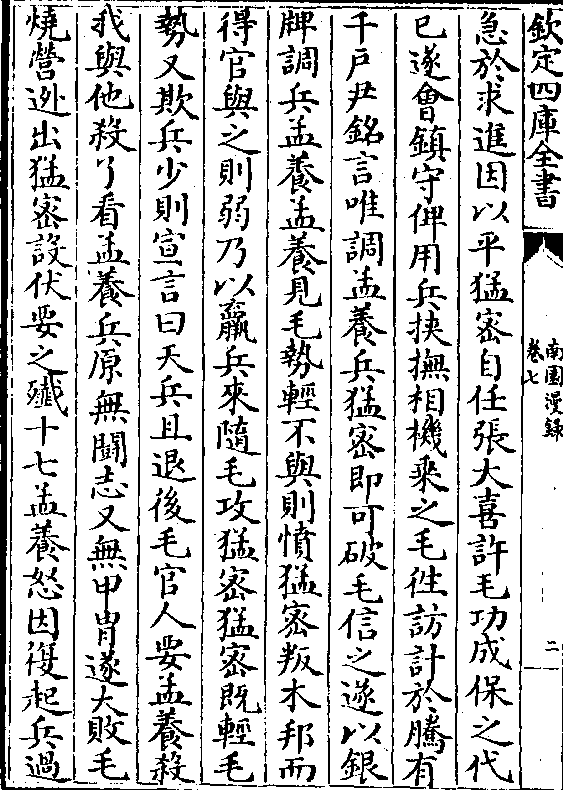 欽定四庫全書
南園漫録
卷七
二
急於求進因以平猛密自任張大喜許毛功成保之代
已遂㑹鎮守俾用兵挟撫相機乘之毛徃訪計於騰有
千戸尹銘言唯調孟養兵猛密即可破毛信之遂以銀
牌調兵孟養孟養見毛勢輕不與則憤猛密叛木邦而
得官與之則弱乃以羸兵來隨毛攻猛密猛密既輕毛
勢又欺兵少則宣言曰天兵且退後毛官人要孟養殺
我與他殺了看孟養兵原無鬭志又無甲胄遂大敗毛
燒營迯出猛密設伏要之殱十七孟養怒因復起兵過